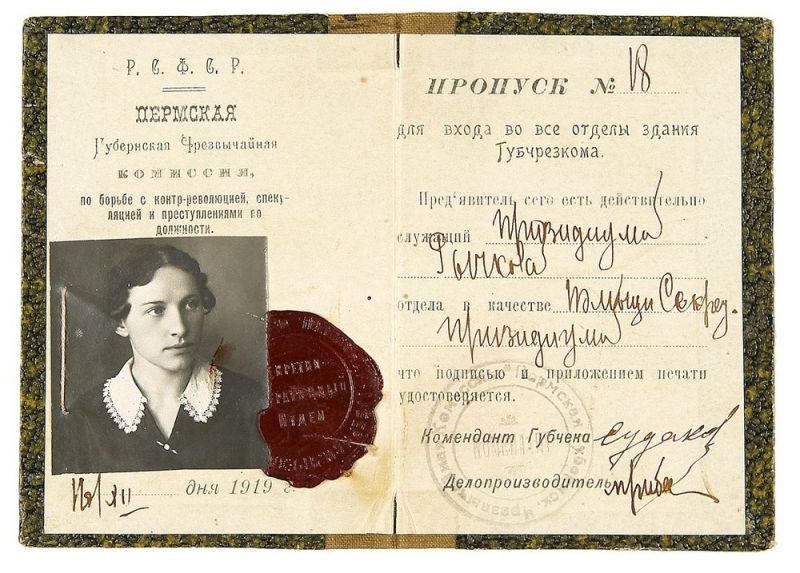 Р. С. Ф. С. Р.
ПЕРМСКАЯ
Губернская Чрезвычайная
КОМИССИЯ,
по борьбе с контр-революцией, спеку-
ляцией и преступлениями по
должности.
дня 1919 г.
ПРОПУСК № 18
для входа во все отделы здания
Губчрезкома.
Пред'явитель сего есть действительно
служащий Призидиума
Рычкова
отдела в качестве Секрет.
Призидиума
что подписью и приложением печати
удостоверяется.
Комендант Губчека Судаков
Делопроизводитель